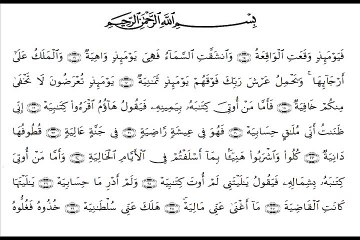 بِسْمِ اللَّهِ الرَّحْمَٰنِ الرَّحِيمِ
فَيَوْمَئِذٍ وَقَعَتِ الْوَاقِعَةُ وَانشَقَّتِ السَّمَاءُ فَهِيَ يَوْمَئِذٍ وَاهِيَةٌ وَالْمَلَكُ عَلَىٰ
أَرْجَائِهَا ۚ وَيَحْمِلُ عَرْشَ رَبِّكَ فَوْقَهُمْ يَوْمَئِذٍ ثَمَانِيَةٌ يَوْمَئِذٍ تُعْرَضُونَ لَا تَخْفَىٰ
مِنكُمْ خَافِيَةٌ فَأَمَّا مَنْ أُوتِيَ كِتَابَهُ بِيَمِينِهِ فَيَقُولُ هَاؤُمُ اقْرَءُوا كِتَابِيَهْ إِنِّي
ظَنَنتُ أَنِّي مُلَاقٍ حِسَابِيَهْ فَهُوَ فِي عِيشَةٍ رَّاضِيَةٍ فِي جَنَّةٍ عَالِيَةٍ قُطُوفُهَا
دَانِيَةٌ كُلُوا وَاشْرَبُوا هَنِيئًا بِمَا أَسْلَفْتُمْ فِي الْأَيَّامِ الْخَالِيَةِ وَأَمَّا مَنْ أُوتِيَ
كِتَابَهُ بِشِمَالِهِ فَيَقُولُ يَا لَيْتَنِي لَمْ أُوتَ كِتَابِيَهْ وَلَمْ أَدْرِ مَا حِسَابِيَهْ يَا لَيْتَهَا
كَانَتِ الْقَاضِيَةَ مَا أَغْنَىٰ عَنِّي مَالِيَهْ ۜ هَلَكَ عَنِّي سُلْطَانِيَهْ خُذُوهُ فَغُلُّوهُ